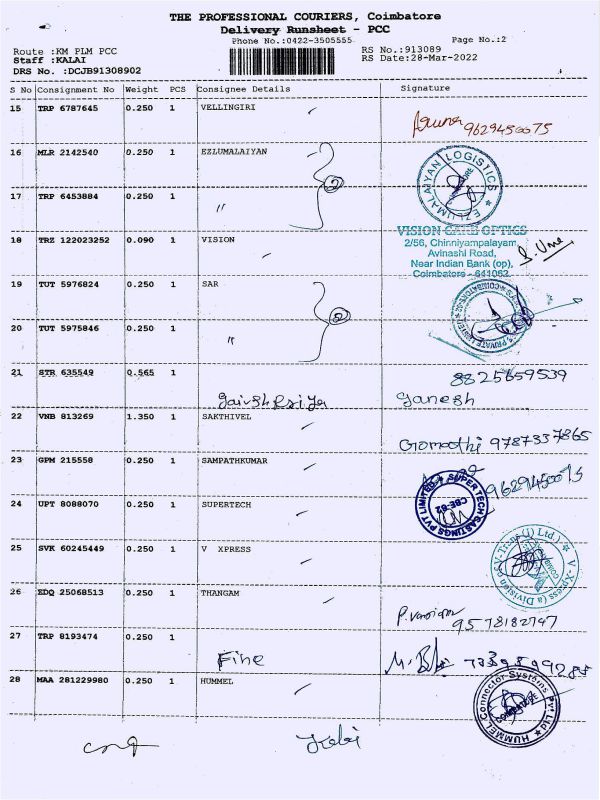 THE PROFESSIONAL COURIERS, Coimbatore
Delivery Runsheet - PCC
Phone No.:0422-3505555 Page No.:2
Route :KM PLM PCC RS No.:913089
Staff :KALAI RS Date:28-Mar-2022
DRS No. :DCJB91308902
S No Consignment No Weight PCS Consignee Details Signature
15 TRP 6787645 0.250 1 VELLINGIRI
9629450075
16 MLR 2142540 0.250 1 EZLUMALAIYAN
EZLUMALAIYAN LOGISTICS
COIMBATORE
17 TRP 6453884 0.250 1 "
VISION CARE OPTICS
18 TRZ 122023252 0.090 1 VISION
2/56, Chinniyampalayam,
Avinashi Road,
Near Indian Bank (op),
Coimbatore - 641062
19 TUT 5976824 0.250 1 SAR
20 TUT 5975846 0.250 1 "
21 STR 635549 0.565 1
8825659539
Ganesh
22 VNB 813269 1.350 1 SAKTHIVEL
Gomathi 9787337865
23 GPM 215558 0.250 1 SAMPATHKUMAR
9629450075
24 UPT 8088070 0.250 1 SUPERTECH
SUPERTECH CASTINGS PVT LIMITED
CBE-62
25 SVK 60245449 0.250 1 V XPRESS
V-Xpress (a Division of V-Trans (I) Ltd.)
26 EDQ 25068513 0.250 1 THANGAM
9578182747
27 TRP 8193474 0.250 1
Fine
28 MAA 281229980 0.250 1 HUMMEL
HUMMEL Connector Systems Pvt Ltd
COIMBATORE